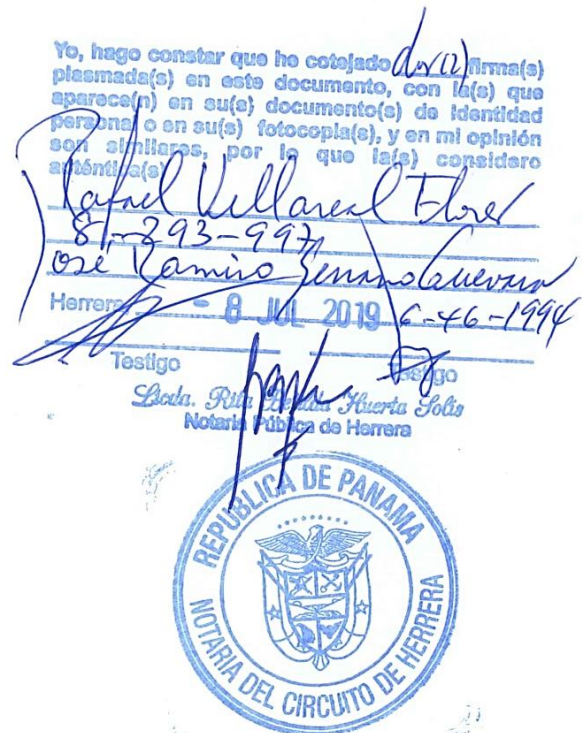 Yo, hago constar que he cotejado dos (2) firma(s)
plasmada(s) en este documento, con la(s) que
aparece(n) en su(s) documento(s) de identidad
personal o en su(s) fotocopia(s), y en mi opinión
son similares, por lo que la(s) considero
auténtica(s)
Rafael Villareal Flores
8-293-997
José Ramiro Serrano Guevara
Herrera - 8 JUL 2019 6-46-1994
Testigo Testigo
Licda. Rita Huerta Solis
Notaria Pública de Herrera
REPUBLICA DE PANAMA
NOTARIA DEL CIRCUITO DE HERRERA